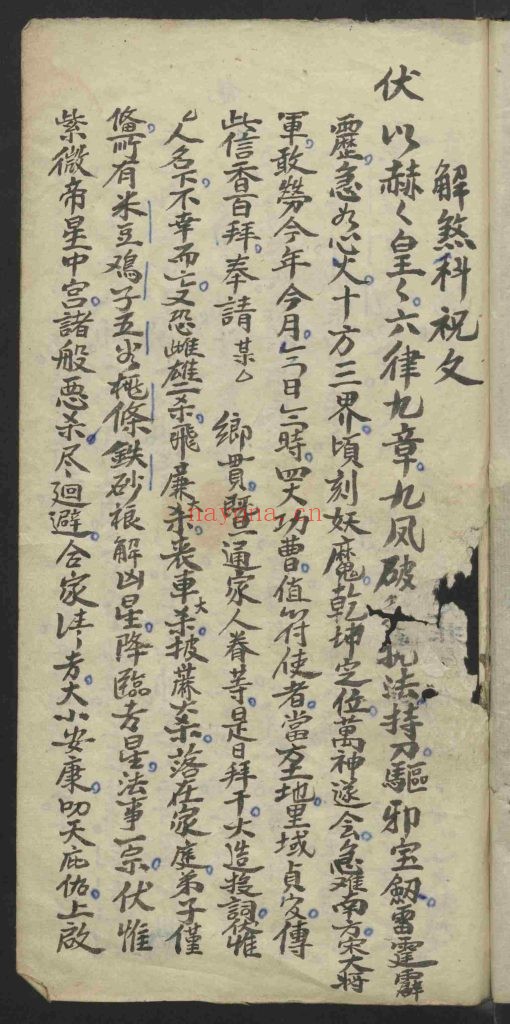 解煞科祝文
伏以赫々皇々六律九章九凤破 执法持刀驅邪宝劔雷霆霹
靂急如心火十方三界頃刻妖魔乾坤定位萬神遂令急难南方宋大将
軍敢勞今年今月今日今時四大功曹值符使者當方土地里域貞官傳
此信香百拜奉請某厶 鄉貫暨通家人眷等是日拜干大造投詞伏惟
厶人名下不幸而亡又恐雌雄二杀飛廉杀丧車大杀披蔴大杀落在家庭弟子僅
俻所有米豆鸡子五谷桃條鉄砂禳解凶星降臨吉星法事一宗伏惟
紫微帝星中宫諸般恶杀尽廻避合家清吉大小安康叩天庇佑上啟
nayona.cn